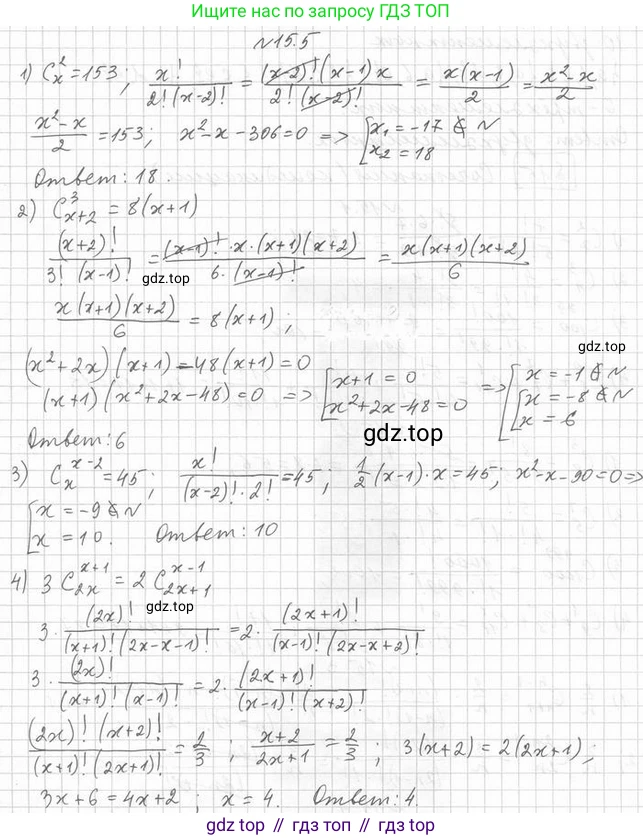 Ищите нас по запросу ГДЗ ТОП
№15.5
1) C_x^2 = 153; x!/(2!(x-2)!) = ((x-2)!(x-1)x)/(2!(x-2)!) = x(x-1)/2 = (x²-x)/2
(x²-x)/2 = 153; x²-x-306=0 => [x₁ = -17 ∉ N
x₂ = 18
Ответ: 18.
2) C_{x+2}^3 = 8(x+1)
(x+2)!/(3!(x-1)!) = ((x-1)!·x·(x+1)(x+2))/(6·(x-1)!) = x(x+1)(x+2)/6
gdz.top
x(x+1)(x+2)/6 = 8(x+1);
gdz.top
(x²+2x)(x+1) - 48(x+1) = 0
(x+1)(x²+2x-48) = 0 => [x+1 = 0
x²+2x-48 = 0 => [x = -1 ∉ N
[x = -8 ∉ N
x = 6
gdz.top
Ответ: 6
3) C_x^{x-2} = 45; x!/((x-2)!·2!) = 45; 1/2(x-1)·x = 45; x²-x-90=0 =>
[x = -9 ∉ N
x = 10. Ответ: 10
4) 3 C_{2x}^{x+1} = 2 C_{2x+1}^{x-1}
gdz.top
3·(2x)!/((x+1)!(2x-x-1)!) = 2·(2x+1)!/((x-1)!(2x-x+2)!)
3·(2x)!/((x+1)!(x-1)!) = 2·(2x+1)!/((x-1)!(x+2)!)
(2x)!(x+2)!/((x+1)!(2x+1)!) = 2/3; (x+2)/(2x+1) = 2/3; 3(x+2) = 2(2x+1);
3x+6 = 4x+2; x = 4. Ответ: 4.
gdz.top // gdz.top // gdz.top